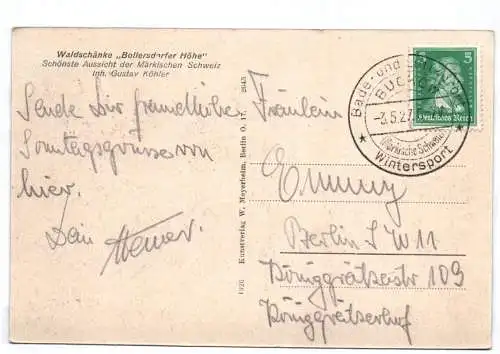 Waldschänke „Bollersdorfer Höhe"
Schönste Aussicht der Märkischen Schweiz
Inh. Gustav Köhler
Sende Dir freundliche
Sonntagsgrüsse von
hier.
Dein Werner.
Kunstverlag W. Meyerheim, Berlin O. 17. 2643
1926
Bade- und
BUC
-3.5.27
Märkische Schweiz
Wintersport
5
Deutsches Reich
Fräulein
Emmy
Berlin SW 11
Königgrätzerstr 109
Königgrätzerhof